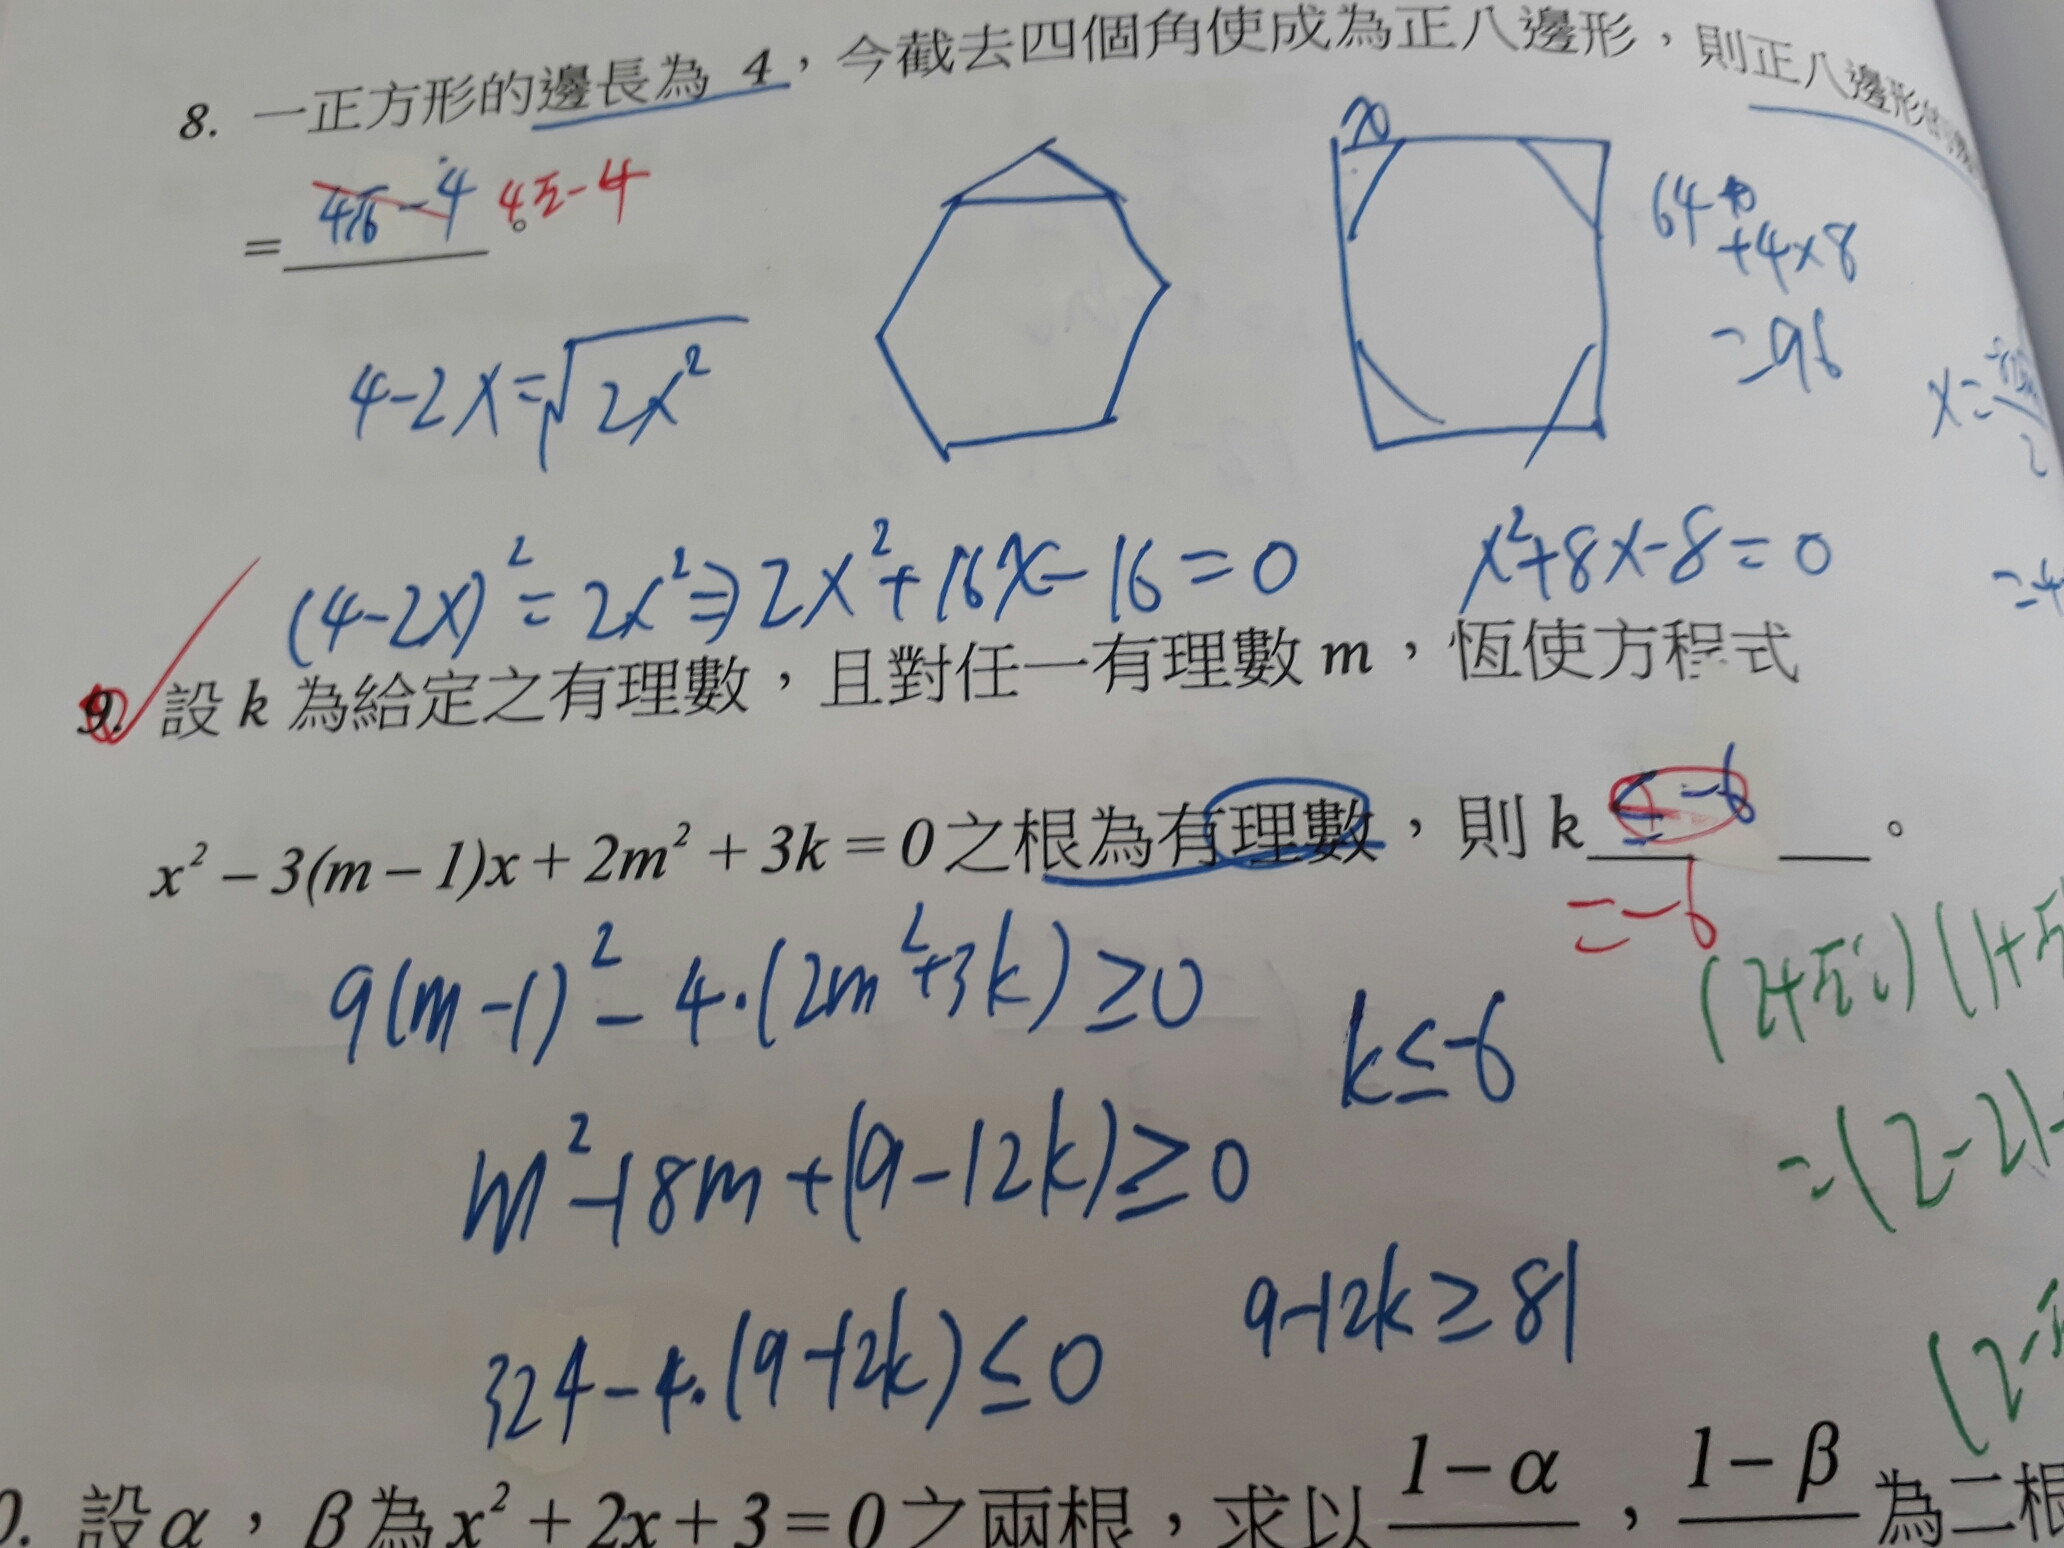 8. 一正方形的邊長為 4，今截去四個角使成為正八邊形，則正八邊形
= 4√6-4 4√2-4 。
x
64
+4×8
=96
4-2x=√2x²
x=
2
(4-2x)²=2x²⇒2x²+16x-16=0
x²+8x-8=0
9. 設 k 為給定之有理數，且對任一有理數 m，恆使方程式
x² − 3(m − 1)x + 2m² + 3k = 0 之根為有理數，則 k ≤ -6 。
=-6
9(m-1)²-4·(2m²+3k)≥0
k≤-6
(2+√2i)(1+√
m²-18m+(9-12k)≥0
=(2-2
324-4·(9-12k)≤0
9-12k≥81
(2-√
0. 設 α，β 為 x² + 2x + 3 = 0 之兩根，求以 1 − α ，1 − β 為二根